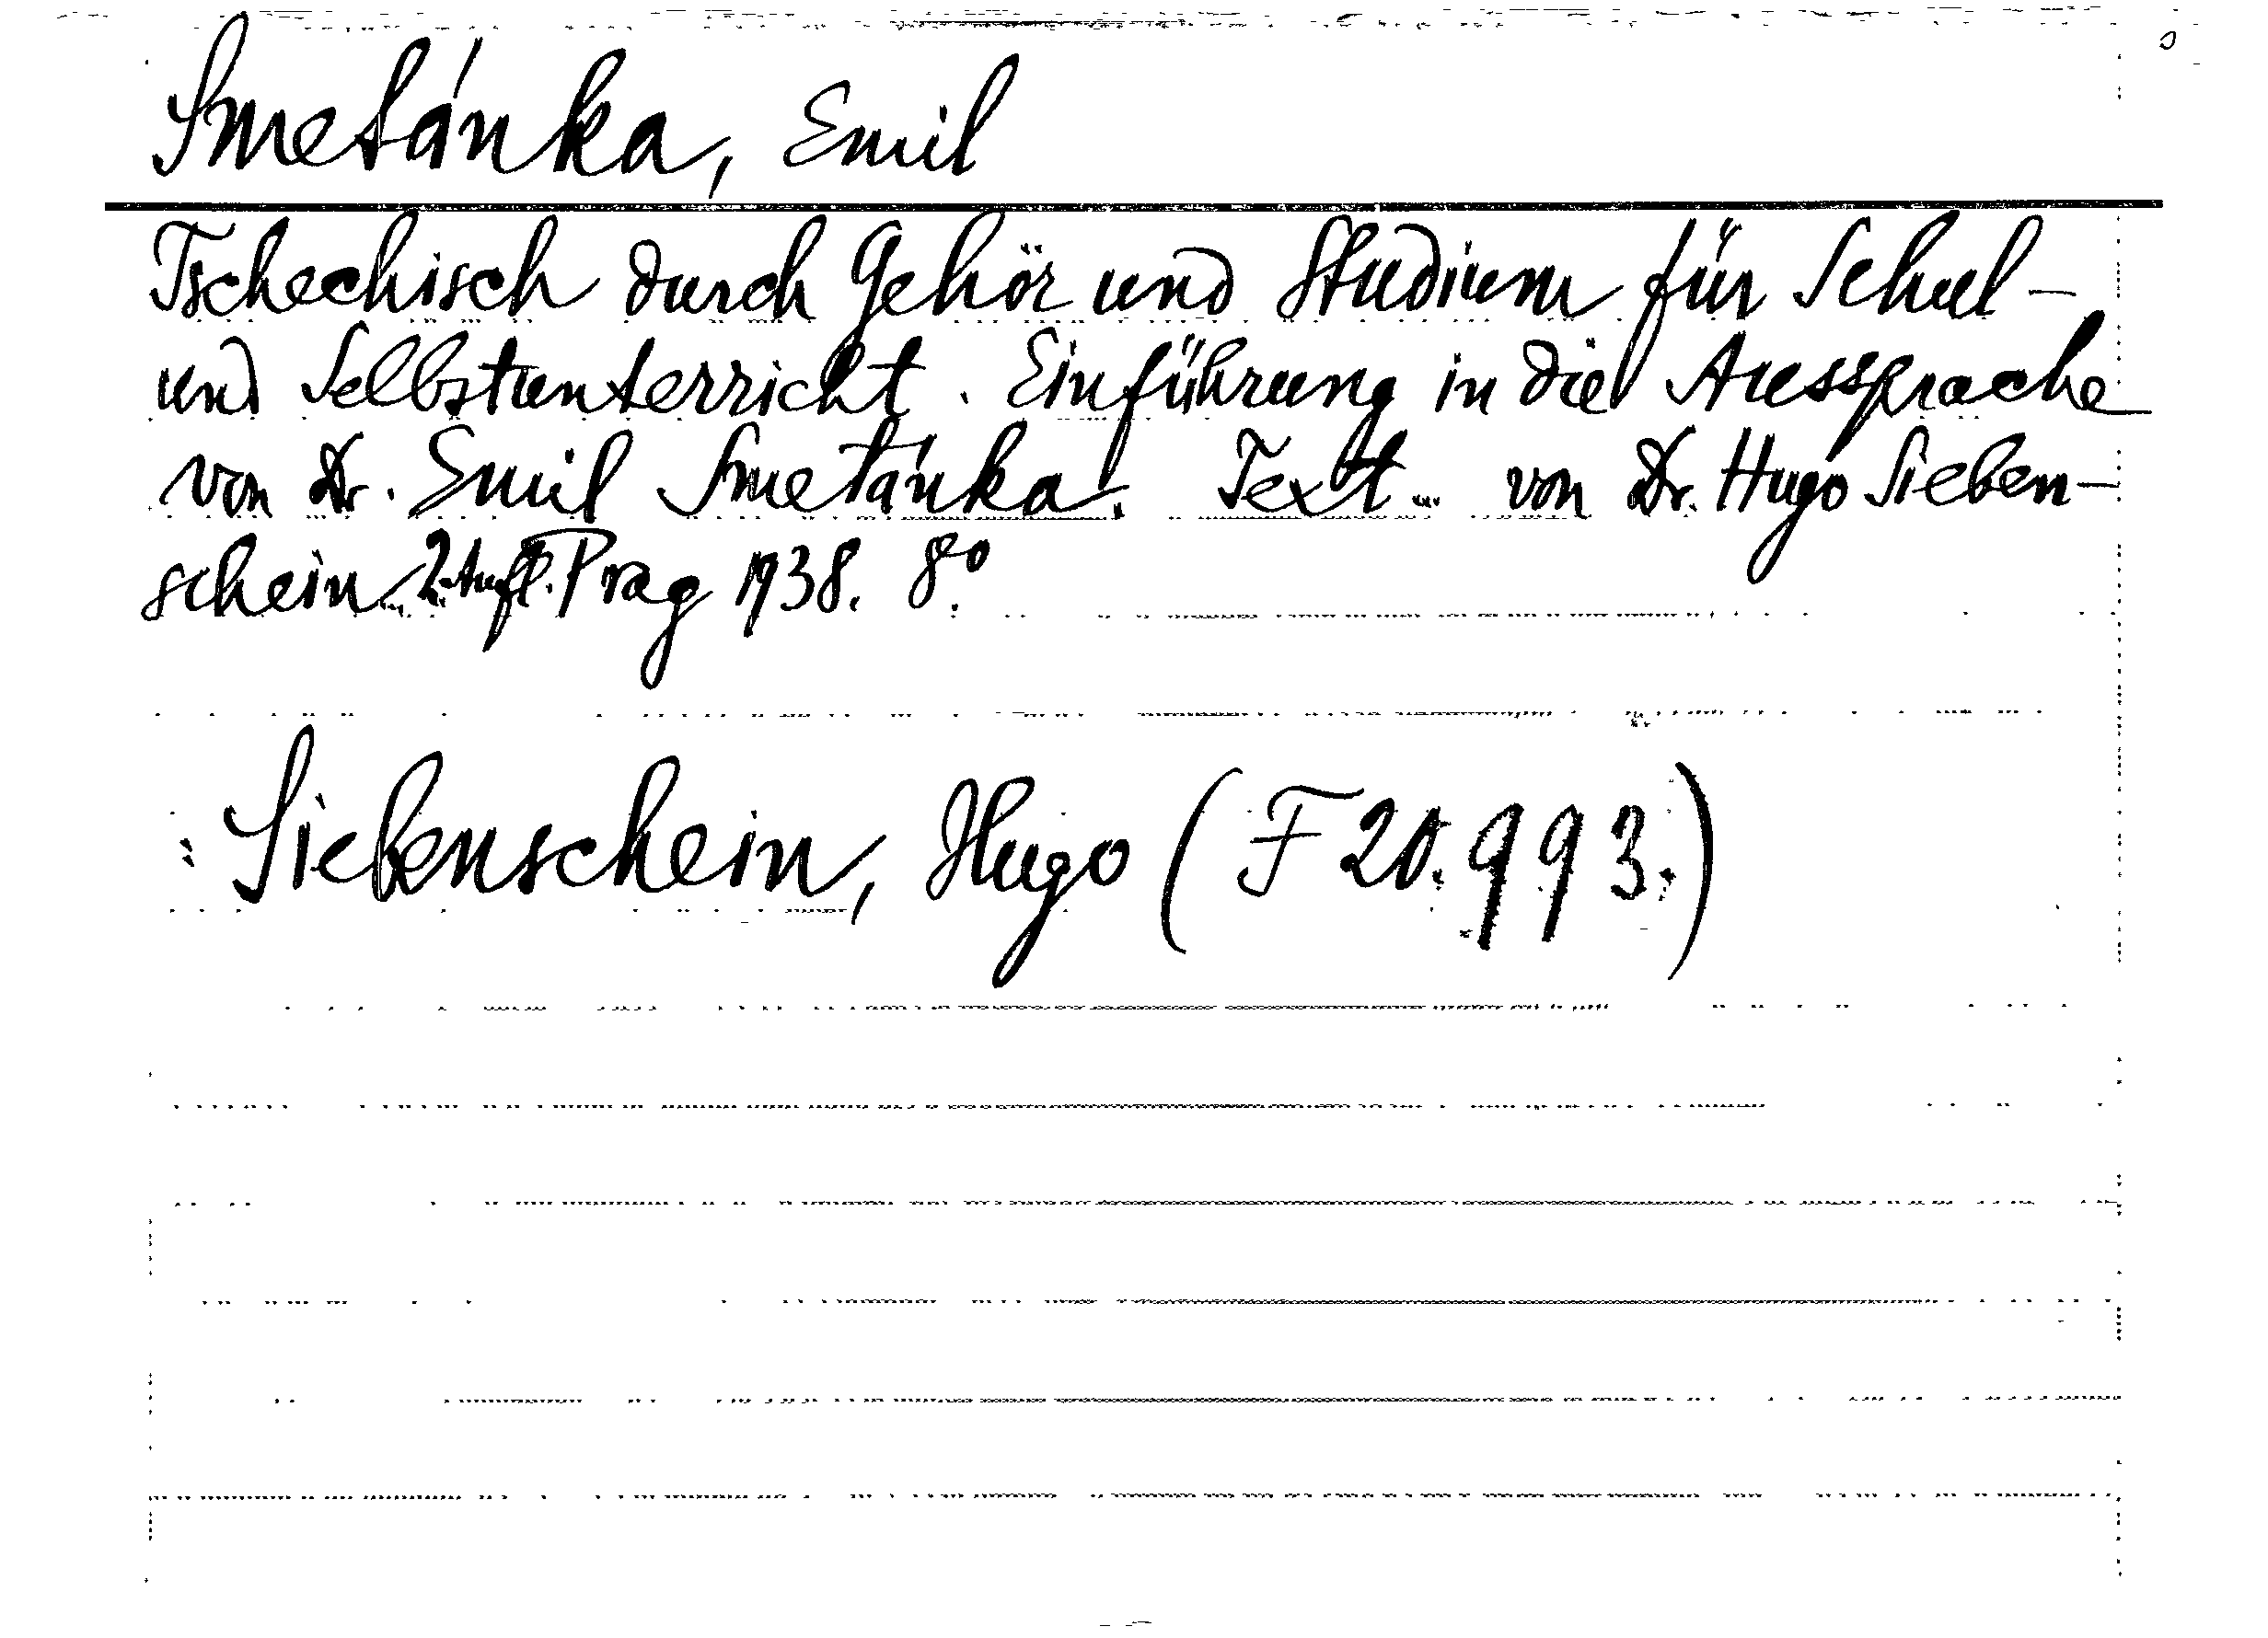 Smetánka, Emil
Tschechisch durch Gehör und Studium für Schul-
und Selbstunterricht. Einführung in die Aussprache
von Dr. Emil Smetánka. Text... von Dr. Hugo Sieben-
schein... 2. Aufl. Prag 1938. 8°.
: Siebenschein, Hugo (F 20.993.)